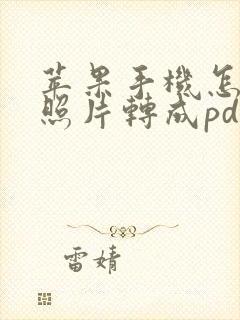 苹果手機怎
照片轉成pd
雷婧